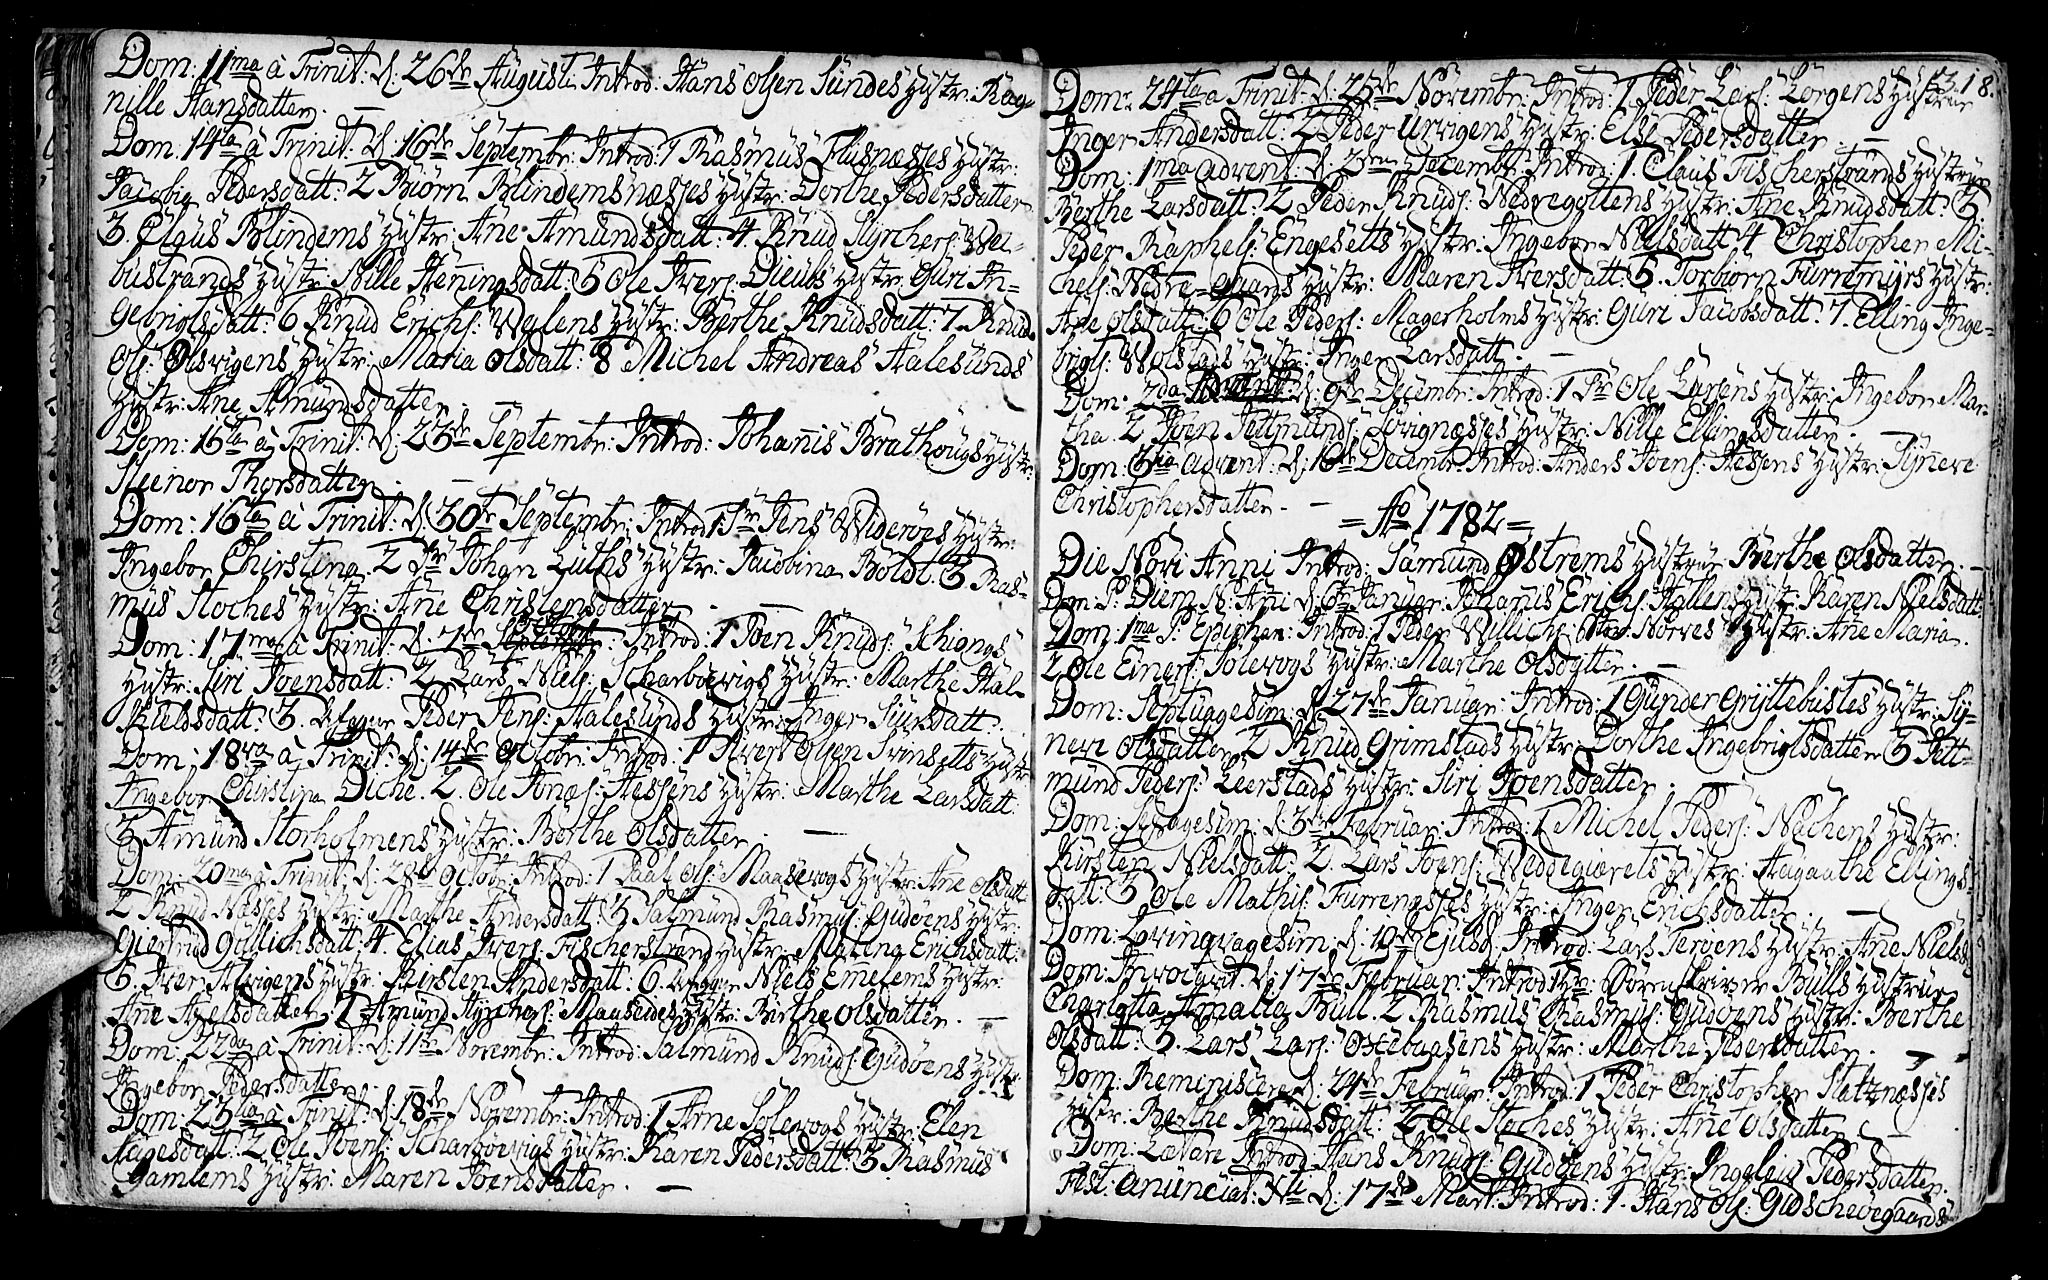 Dom: 11ma à Trinit: d: 26de August: Introd: Hans Olsen Sundes Hustr: Rag-
nille Hansdatter. —
Dom: 14ta à Trinit: d: 16de Septembr: Introd: 1 Rasmus Flisnæsses Hustr:
Jacobia Pedersdatt: 2 Biørn Blindemsnæsses Hustr: Dorthe Pedersdatter
3. Blindems Hustr: Ane Amundsdatt: 4. Knud
bustrands Hustr: Nille Henningsdatt: 5 Ole Ivers: Hustr: Guri In-
gebrigtsdatt: 6 Knud Erichs: Walens Hustr: Berthe Knudsdatt: 7. Knud
Ols: Olsvigens Hustr: Maria Olsdatt: 8 Michel Andreas Aalesunds
Hustr: Ane Amundsdatter. —
Dom: 15ta à Trinit: d: 23de Septembr: Introd: Johannis Brathougs Hustr:
Thorsdatter. —
Dom: 16ta à Trinit: d: 30te Septembr: Introd: 1 Sr Jens Widerøes Hustr:
Ingebor Chirstina. 2 Sr Johan Luths Hustr: Jacobina Boldt. 3 Ras-
mus Stoches Hustr: Ane Christensdatter. —
Dom: 17ma à Trinit: d: 7de Octobr: Introd: 1 Joen Knuds: Schiongs
Hustr: Siri Joensdatt: 2 Lars Niels: Scharbøevigs Hustr: Marthe Hal-
kieldsdatt: 3. Peder Jens: Aalesunds Hustr: Inger Siursdatt.
Dom: 18va à Trinit: d: 14de Octobr: Introd: 1 Iver Olsen Hustr:
Ingebor Chirstina Diche. 2. Ole Jonas: Hessens Hustr: Marthe Larsdatt:
3 Amund Storholmens Hustr: Berthe Olsdatter. —
Dom: 20ma à Trinit: d: 28de Octobr: Introd: 1 Paal Ols: Maasevogs Hustr: Ane Olsdatt:
2 Knud Næsses Hustr: Marthe Andersdatt: 3 Salmund Rasmus: Gudøens Hustr:
Giertrud Gullichsdatt: 4. Elias Ivers: Fischerstrand Hustr: Marena Erichsdatt:
5. Iver Hustr: Kirsten Andersdatt: 6. Niels Emelems Hustr:
Ane Axelsdatter. 7 Amund Maaseides Hustr: Birthe Olsdatter. —
Dom: 22da à Trinit: d: 11te Novembr: Introd: Salmund Knuds: Gudøens Hustr:
Ingebor Pedersdatter. —
Dom: 23tia à Trinit: d: 18de Novembr: Introd: 1 Arne Solevogs Hustr: Elen
Aagesdatt: 2 Ole Joens: Scharbøevigs Hustr: Karen Pedersdatt: 3 Rasmus
Gamlems Hustr: Maren Joensdatter. —
18.
Dom: 24ta à Trinit: d: 25de Novembr: Introd: 1 Peder Lars: Hustrue
Inger Andersdatt: 2 Peder Urvigens Hustr: Else Pedersdatter. —
Dom: 1ma Advent: d: 2den Decembr: Introd: 1. Claus Fischerstrands Hustrue
Berthe Larsdatt: 2 Peder Knuds: Hustr: Ane Knudsdatt: 3.
Peder Raphels: Engesetts Hustr: Ingebor Nielsdatt: 4 Christopher Mi-
chels: Nedre-Gaards Hustr: Maren Iversdatt: 5. Torbiørn Furremyrs Hustr:
Ane Olsdatt: 6 Ole Peders: Magerholms Hustr: Guri Jacobsdatt: 7. Elling Inge-
brigts: Wolstads Hustr: Inger Larsdatt. —
Dom: 2da d: 9de Decembr: Introd: 1 Sr Ole Hustr: Ingebor Mar-
tha. 2 Joen Pettmunds: Hustr: Nille Ellingsdatter. —
Dom: 3tia Advent: d: 16de Decembr: Introd: Anders Joens: Hessens Hustr: Synneve
Christophersdatter. —
= Ao 1782 =
Die Novi Anni Introd: Samund Østrems Hustrue Berthe Olsdatter. —
Dom: P: Diem N: Ani d: 6te Januar: Johannis Erichs: Hustr: Karen Nielsdatt:
Dom: 1ma P: Epiphan: Introd: 1 Peder Nørves Hustr: Ane Maria.
2 Ole Einers: Solevogs Hustr: Marthe Olsdatter. —
Dom: Septuagesim: d: 27de Januar: Introd: 1 Gunder Gryttebustes Hustr: Sy-
nevi Olsdatter 2 Knud Grimstads Hustr: Dorthe Ingebrigtsdatter 3 Pett-
mund Peders: Leerstads Hustr: Siri Joensdatter. —
Dom: Sexagesim: d: 3de Februar: Introd: 1 Michel Peders: Hustr:
Kirsten Nielsdatt: 2. Lars Joens: Hustr: Aagaathe Ellings-
datt: 3 Ole Mathis: Furrenæsses Hustr: Inger Erichsdatter. —
Dom: d: 10de Introd: Lars Terøens Hustr: Ane Nielsd:
Dom: Invocavit. d: 17de Februar: Introd: 1 Hr: Sorenskriver Bulls Hustrue
Charlotta Amalia Bull. 2 Rasmus Rasmus: Gudøens Hustr: Berthe
Olsdatt: 3. Lars Lars: Hustr: Marthe Pedersdatter. —
Dom: Reminiscere d: 24de Februar: Introd: 1 Peder Christopher Slatznæsses
Hustr: Berthe Knudsdatt: 2 Ole Stoches Hustr: Ane Olsdatter. —
Dom: Lætare Introd: Hans Knuds: Gudøens Hustr: Ingeleiv Pedersdatter.
Fest: Anunciat: d: 17de Mart: Introd: 1. Hans Ols: